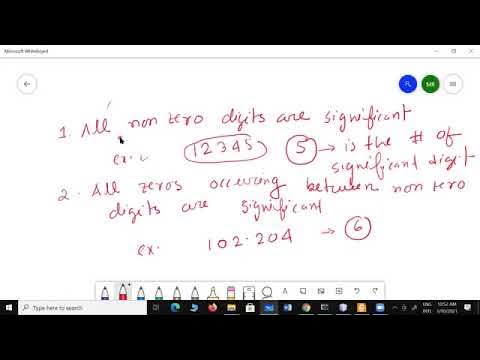 Microsoft Whiteboard
SIR
1. All non zero digits are significant
ex. 12345 5 → is the # of
significant digit
2. All zeros occuring between non zero
digits are significant
ex. 102.204 → 6
Type here to search
ENG
10:52 AM
INTL